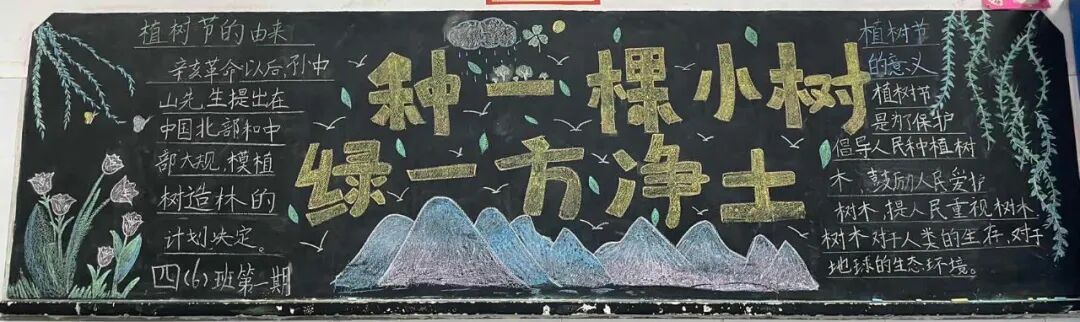 植树节的由来
辛亥革命以后,孙中
山先生提出在
中国北部和中
部大规模植
树造林的
计划决定。
四(6)班第一期
种一棵小树
绿一方净土
植树节
的意义
植树节
是为了保护
倡导人民种植树
木,鼓励人民爱护
树木,提人民重视树木
树木对于人类的生存,对于
地球的生态环境。